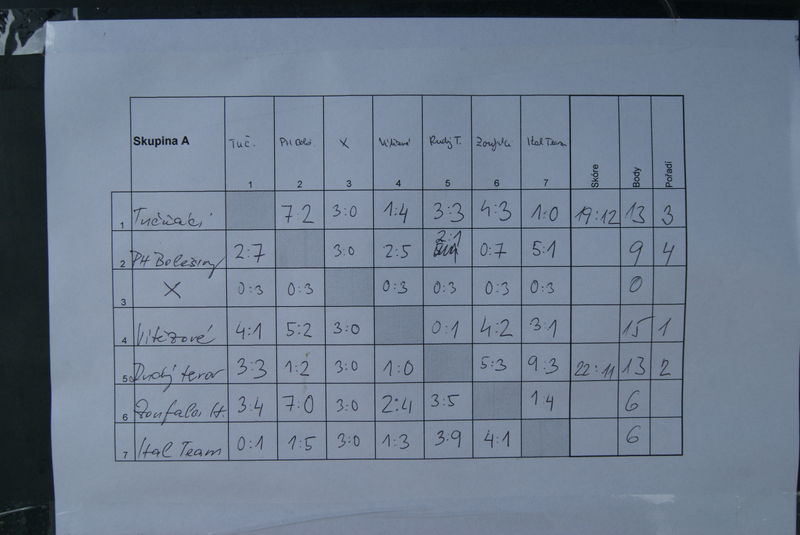 Skupina A Tuč. X Rudý T. Ital Team Skóre Body Pořadí
1 2 3 4 5 6 7
1 7:2 3:0 1:4 3:3 4:3 1:0 19:12 13 3
2 PH Belesiny 2:7 3:0 2:5 2:1 0:7 5:1 9 4
3 X 0:3 0:3 0:3 0:3 0:3 0:3 0
4 Vítězové 4:1 5:2 3:0 0:1 4:2 3:1 15 1
5 Rudý teror 3:3 1:2 3:0 1:0 5:3 9:3 22:11 13 2
6 3:4 7:0 3:0 2:4 3:5 1:4 6
7 Ital Team 0:1 1:5 3:0 1:3 3:9 4:1 6